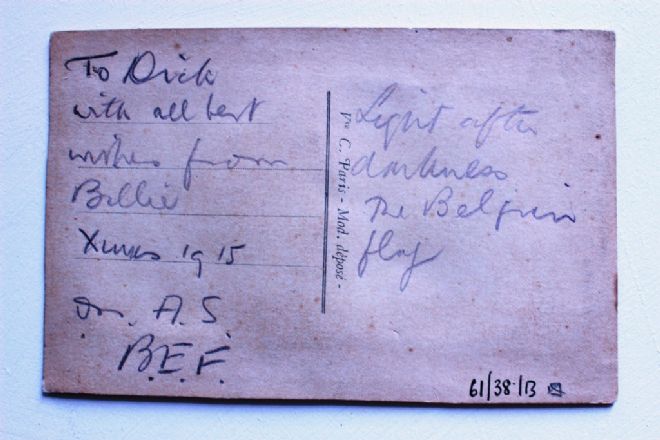 To Dick
with all best
wishes from
Billie
Xmas 1915
A.S.
B.E.F.
Light after
darkness
The Belgian
flag
C. Paris - Mod. déposé -
61/38/13